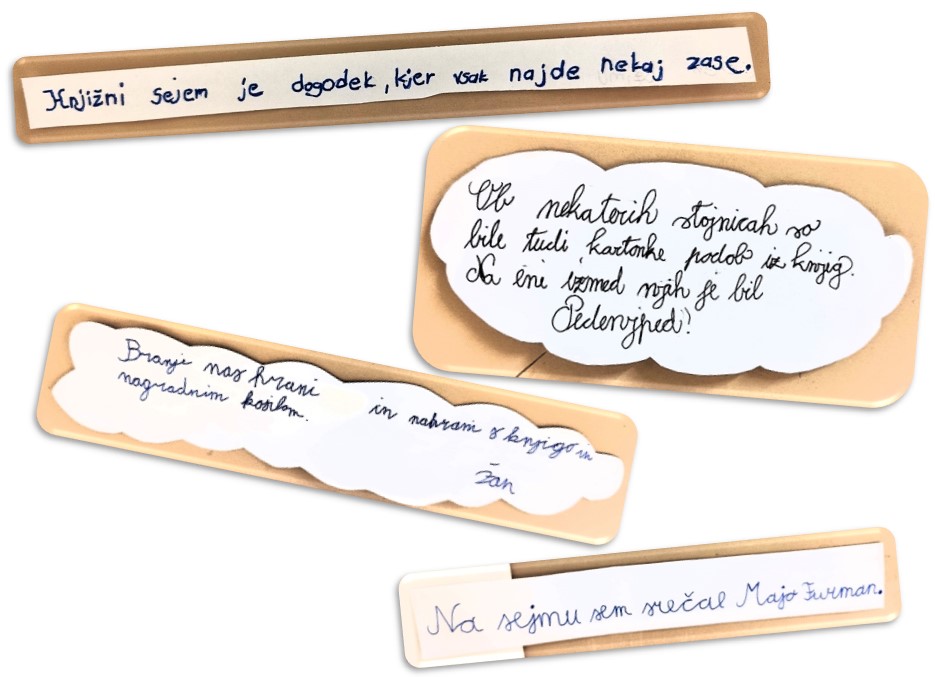 Knjižni sejem je dogodek, kjer vsak najde nekaj zase.
Ob nekaterih stojnicah so
bile tudi kartonke podob iz knjig.
Na eni izmed njih je bil
Pedenjped!
Branje nas hrani in nahrani s knjigo in
nagradnim kosilom.
Žan
Na sejmu sem srečal Majo Furman.